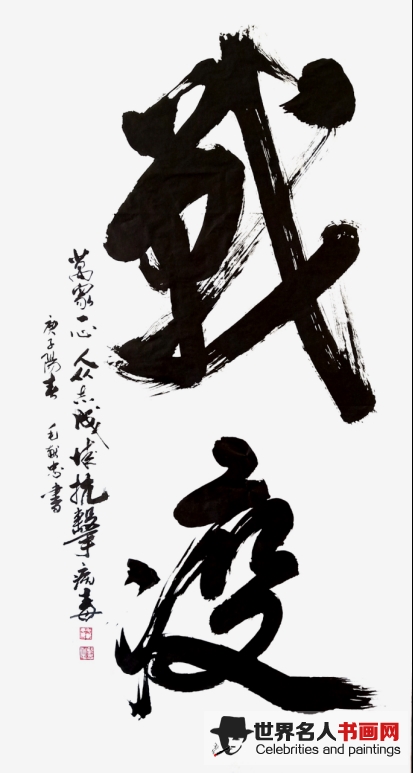 戰疫
萬家一心人众志成城抗擊疫毒
庚子陽春 毛献忠書
世界名人书画网
Celebrities and paintings